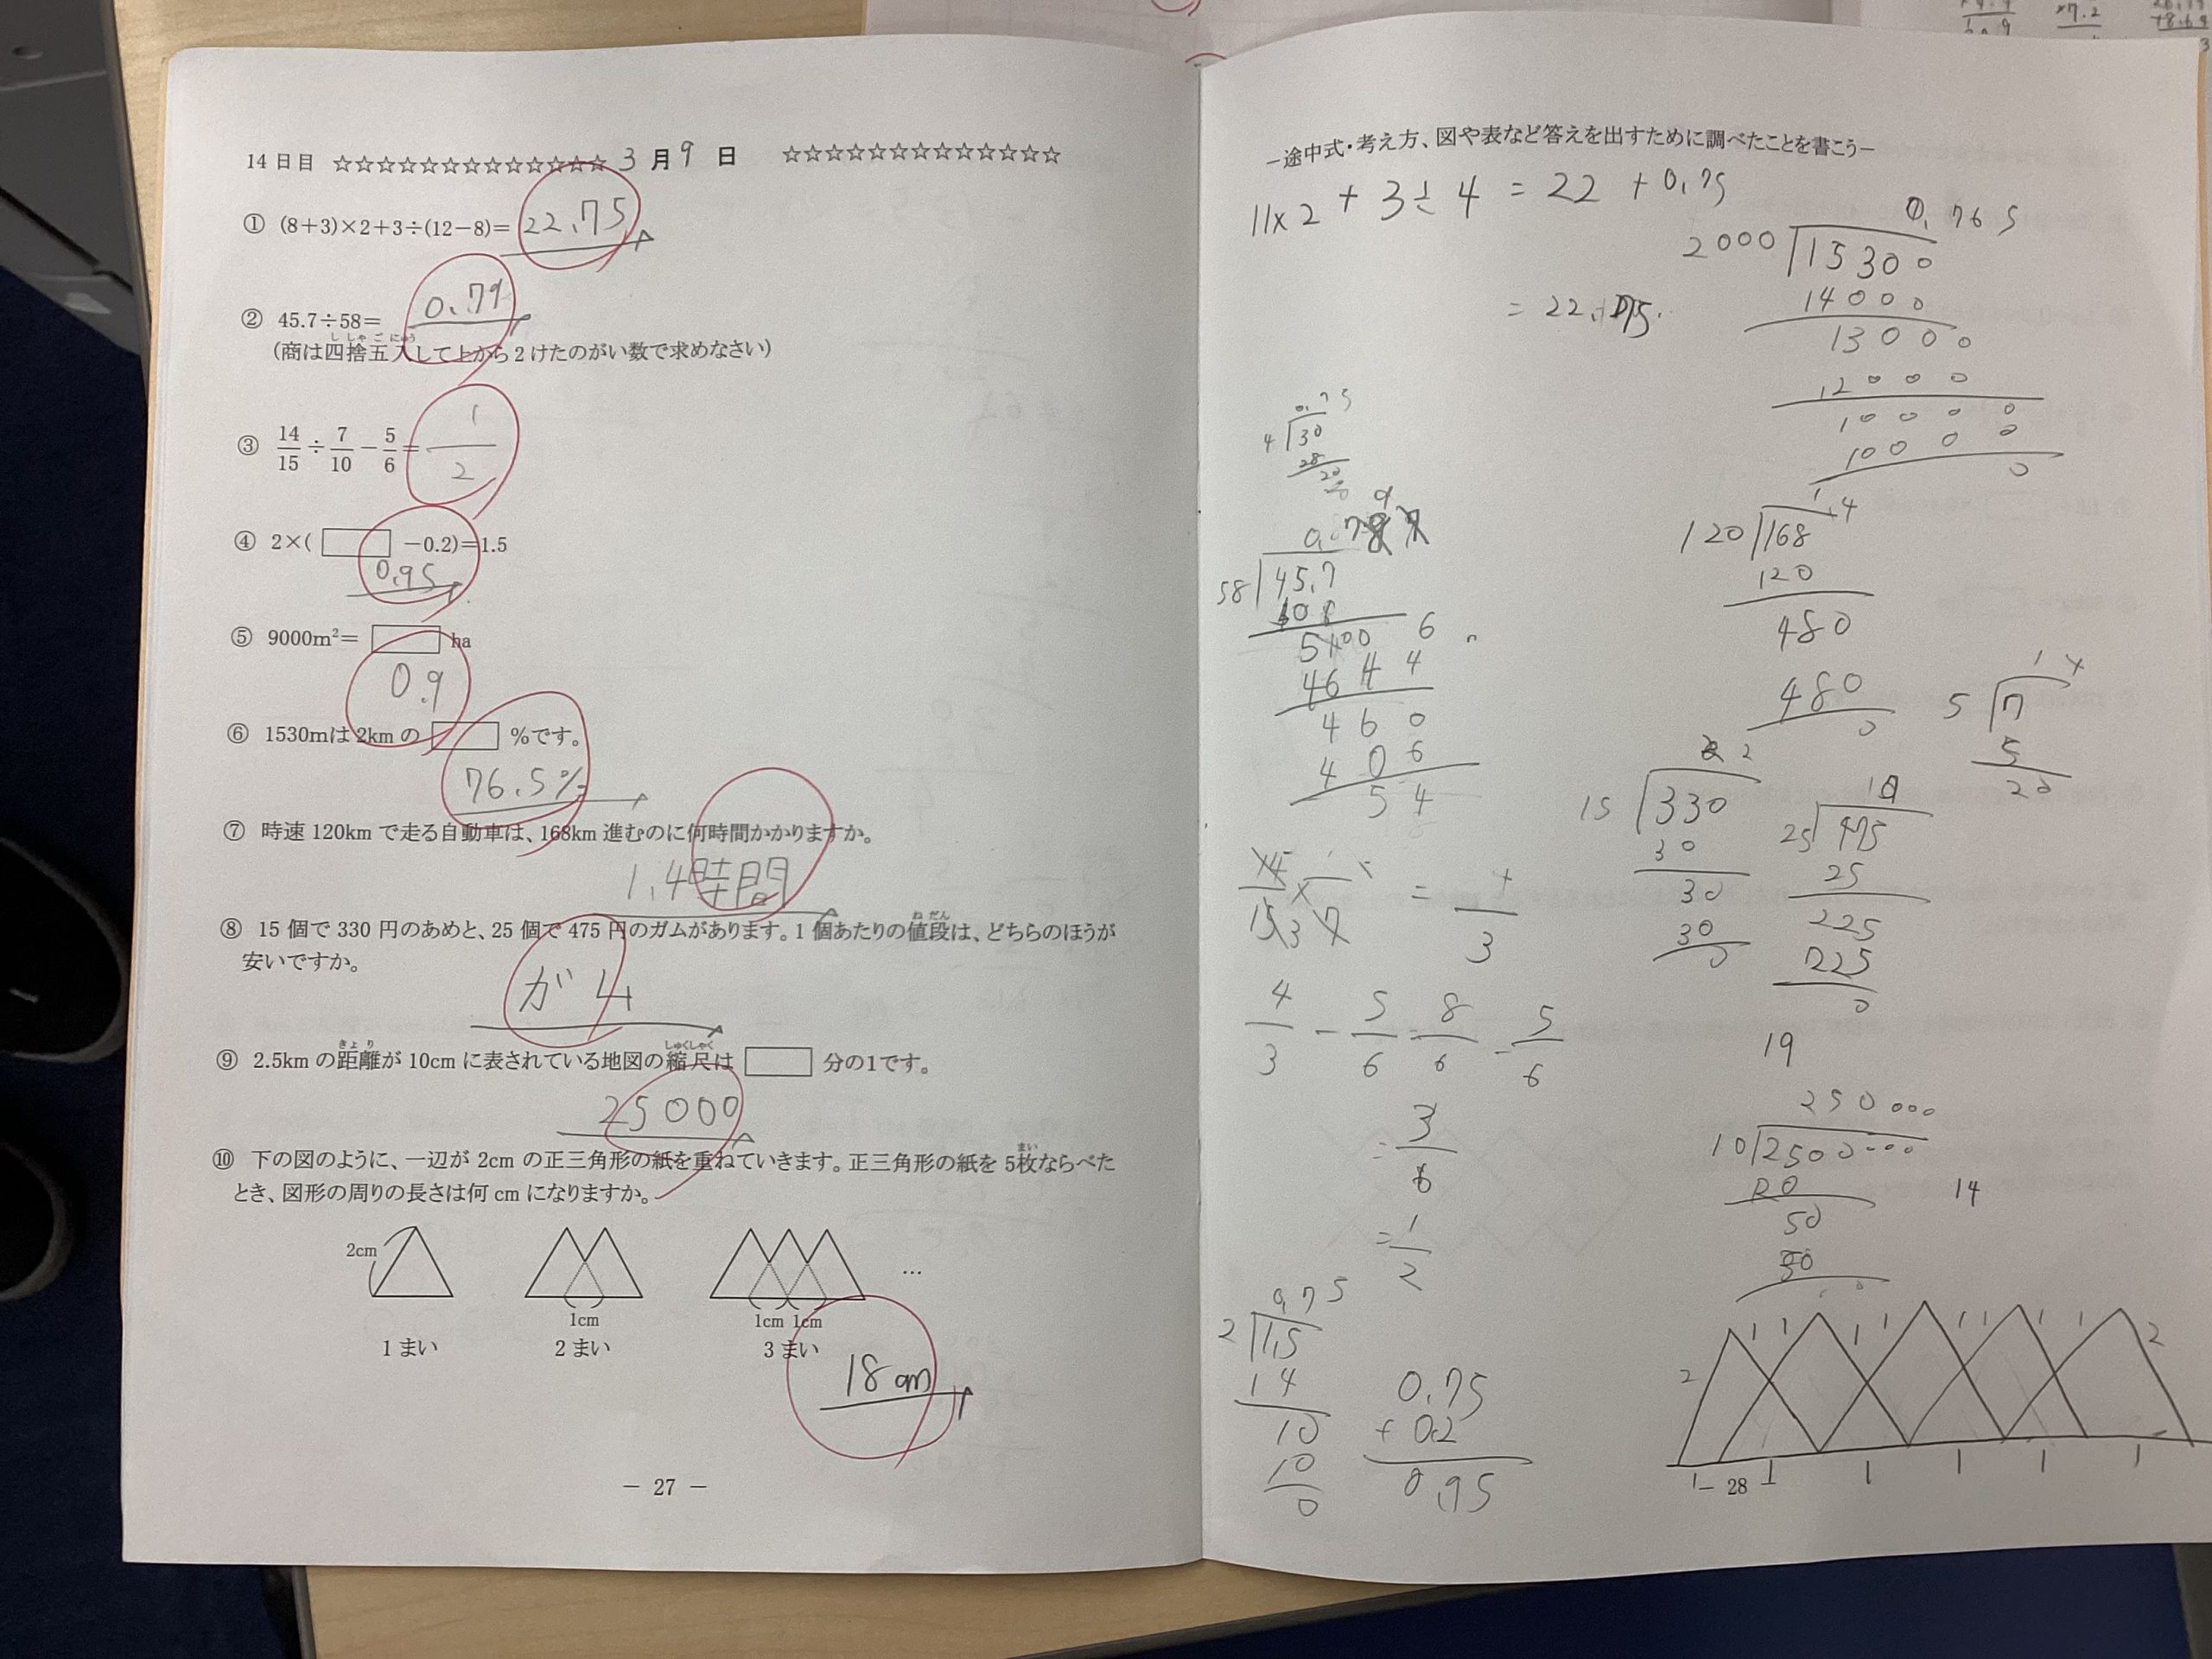 14日目 ☆☆☆☆☆☆☆☆☆☆☆☆☆ 3月9日 ☆☆☆☆☆☆☆☆☆☆☆☆☆
① (8+3)×2+3÷(12−8)= 22.75
② 45.7÷58= 0.79
(商は四捨五入して上から2けたのがい数で求めなさい)
③ 14/15÷7/10−5/6= 1/2
④ 2×( −0.2)=1.5
0.95
⑤ 9000m²= ha
0.9
⑥ 1530mは2kmの %です。
76.5%
⑦ 時速120kmで走る自動車は、168km進むのに何時間かかりますか。
1.4時間
⑧ 15個で330円のあめと、25個で475円のガムがあります。1個あたりの値段は、どちらのほうが
安いですか。
ガム
⑨ 2.5kmの距離が10cmに表されている地図の縮尺は 分の1です。
25000
⑩ 下の図のように、一辺が2cmの正三角形の紙を重ねていきます。正三角形の紙を5枚ならべた
とき、図形の周りの長さは何cmになりますか。
2cm
1cm
1cm 1cm
…
1まい
2まい
3まい
18cm
− 27 −
−途中式・考え方、図や表など答えを出すために調べたことを書こう−
11×2+3÷4=22+0.75
0.765
2000 15300
14000
13000
12000
10000
10000
0
0.75
4 30
28
20
58 45.7
406
4644
460
406
54
1.4
120 168
120
480
480
0
1.4
5 7
5
20
15 330
30
30
30
0
19
25 475
25
225
225
0
4/3 − 5/6 = 8/6 − 5/6
19
= 3/6
= 1/2
250000
10 2500000
20
50
50
14
0.75
2 1.5
14
10
10
0
0.75
+ 0.2
0.95
2 1 1 1 1 1 1 1 1 2
1 1 1 1 1 1
− 28